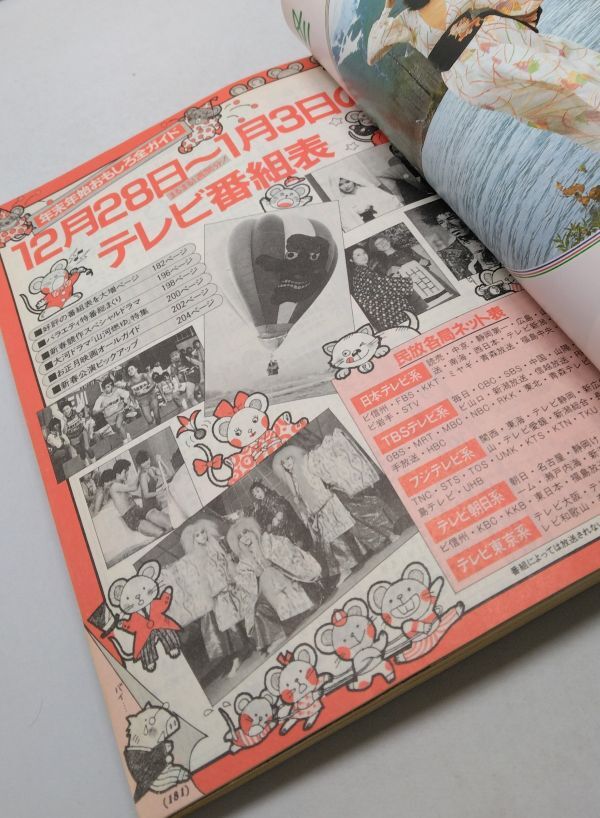 年末年始おもしろ全ガイド
12月28日～1月3日の
テレビ番組表
■好評の番組表を大増ページ 182ページ
■バラエティ特番総まくり 196ページ
■新春競作スペシャルドラマ 198ページ
■大河ドラマ「山河燃ゆ」特集 200ページ
■お正月映画オールガイド 202ページ
■新春公演ピックアップ 204ページ
民放各局ネット表
日本テレビ系
読売・中京・静岡第一・広島・
ビ信州・FBS・KKT・ミヤギ・青森放送・福島中央
ビ岩手・STV
TBSテレビ系
毎日・CBC・SBS・中国・山陽
OBS・MRT・MBC・NBC・RKK・東北・青森テレ
手放送・HBC
フジテレビ系
関西・東海・テレビ静岡・新
TNC・STS・TOS・UMK・KTS・KTN・TKU
島テレビ・UHB
テレビ朝日系
朝日・名古屋・静岡け
ーム・瀬戸内海・新
ビ信州・KBC・KKB・東日本・福島放
テレビ東京系
テレビ大阪・テ
ビ和歌山・
番組によっては放送されない
(181)